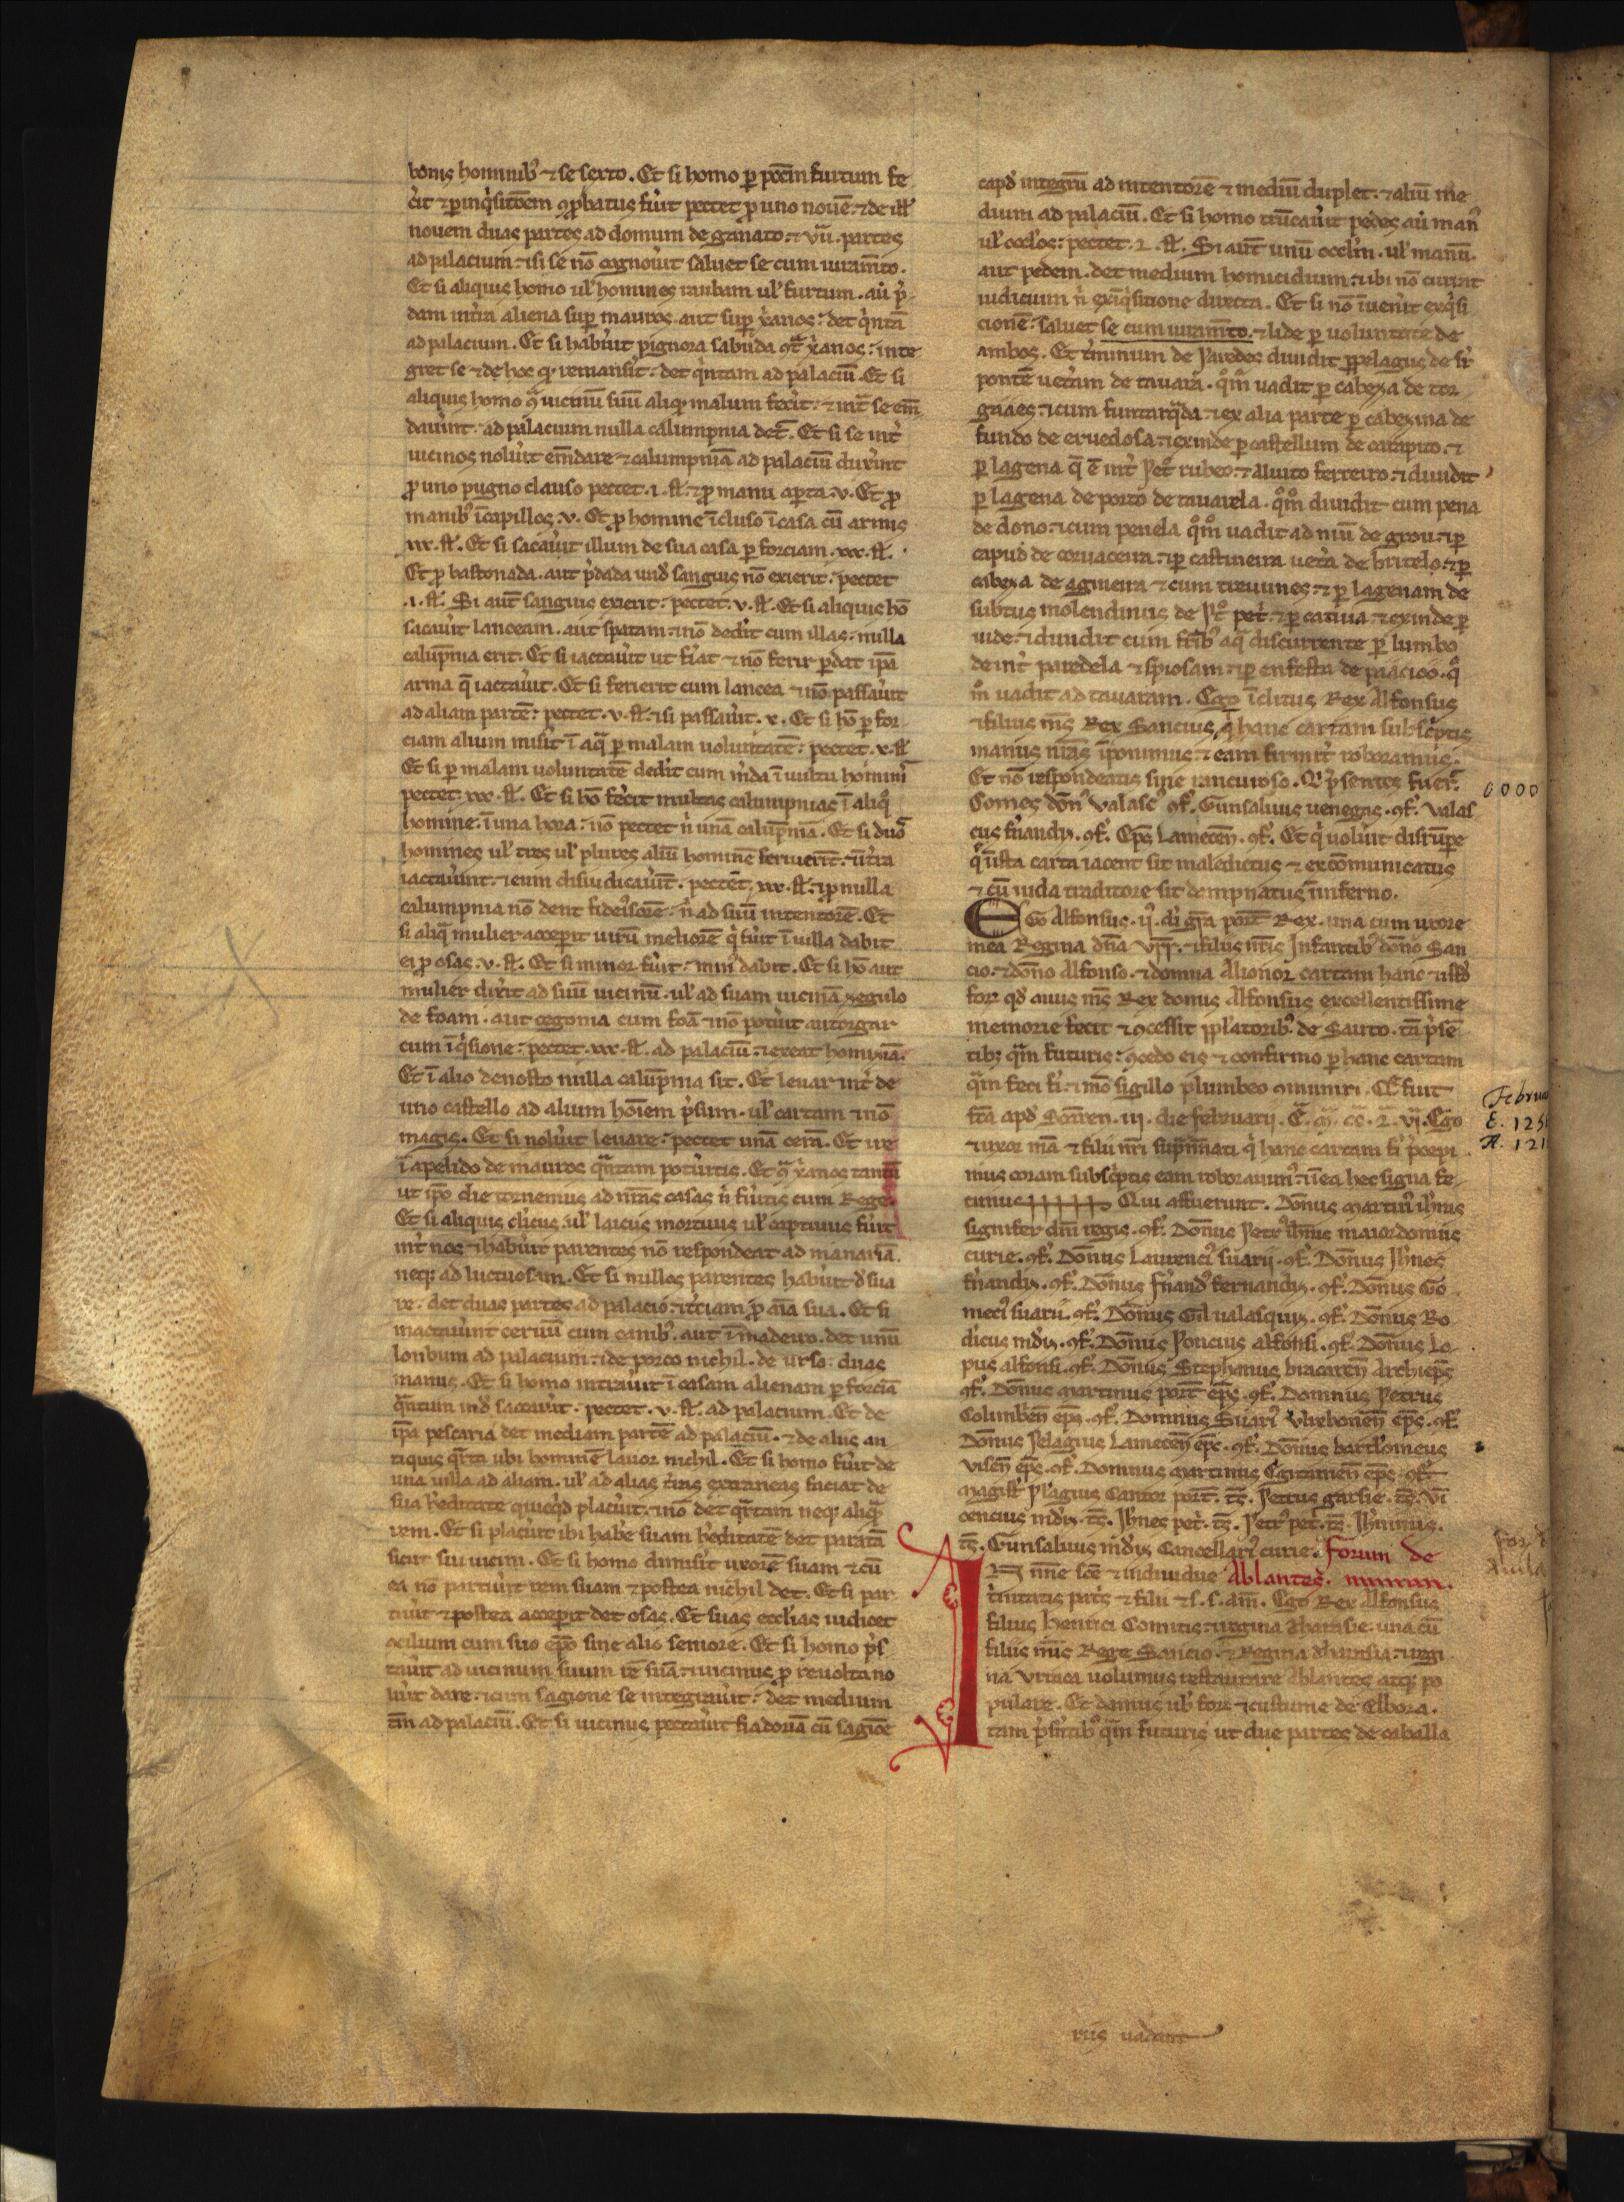 bonis hominib⁹ ⁊ se sexto. Et si homo ꝑ pōcīn furtum fe
c̉it ⁊ ꝑ inq̇sitōem ꝯꝓbatus fu̇it pectet ꝓ uno nouē. ⁊ de ill̕
nouem duas partes ad domum de ganato. ⁊ vıı̄. partes
ad palacium. ⁊ si se nō cognouit saluet se cum iuram̄to.
Et si aliquis homo ul̕ homines raubam ul̕ furtum. au̇ p̄
dam int̉ra aliena suꝑ mauros aut suꝑ xānos. det q̇ntā
ad palacium. Et si habu̇int pignora sabuda ꝯt̄ xānos. inte
gret se ⁊ de hoc qͥ remansit. det q̇ntam ad palaciū. Et si
aliquis homo ꝯͣ uicinū suū aliqͥ malum fec̉it. ⁊ int̄ se em̄
dau̇int. ad palacium nulla calumpnia det̄. Et si se int̉
uicinos nolu̇it em̄dare ⁊ calumpniā ad palaciū dux̉int
ꝓ uno pugno clauso pectet .i. sł. ⁊ ꝓ manu aꝑta .v. Et ꝓ
manib⁹ ī capillos .v. Et ꝓ homine īcluso ī casa cū armis
xxx. sł. Et si sacau̇it illum de sua casa ꝑ forciam. xxx. sł.
Et ꝓ bastonada. aut p̉dada und̄ sanguis nō exierit. pectet
.i. sł. Si aūt sanguis exierit. pectet. v. sł. Et si aliquis hō
sacau̇it lanceam. aut spatam. ⁊ nō dedit cum illas. nulla
calūpnia erit. Et si iactau̇it ut fi̇at ⁊ nō ferir ꝑdat ip̄a
arma q̄ iactau̇it. Et si ferierit cum lancea ⁊ nō passau̇it
ad aliam partē. pectet. v. sł. ⁊ si passau̇it. x. Et si hō ꝑ for
ciam alium misit ī aqͣ ꝑ malam uoluntatē. pectet. v. sł.
Et si ꝑ malam uoluntatē dedit cum m̉da ī uultu homini
pectet. xxx. sł. Et si hō fec̉it multas calumpnias ī aliqͦ
homine. ī una hora. nō pectet n̉ unā calūpniā. Et si duo
homines ul̕ tres ul̕ plures aliū hominē feruerīt. ⁊ t̉ra
iactau̇int. ⁊ eum disiudicau̇īt. pectēt. xxx. sł. ⁊ ꝓ nulla
calumpnia nō dent fideiᵒsorē. n̉ ad suū intentorē. Et
si aliqͣ mulier acceperit uirū meliorē q̇ fu̇it ī uilla dabit
ei ꝓ osas. v. sł. Et si minor fu̇it. min⁹ dabit. Et si hō aut
mulier dixit ad suū uicinū. ul̕ ad suam uicinā segulo
de foam. aut cegonia cum foā ⁊ nō potu̇it autorgar
cum īq̇sione. pectet. xxx. sł. ad palaciū. ⁊ exeat homiziā.
Et ī alio denosto nulla calūpnia sit. Et leuar int̉ de
uno castello ad alium hoīem p̉sum. ul̕ cartam ⁊ nō
magis. Et si nolu̇it leuare. pectet unā cerā. Et ire
ī apelido de mauros qͣntum potu̇itis. Et ꝯͣ xānos tantū
ut ip̄o die tornemus ad nr̄as casas n̉ fu̇itis cum Rege.
Et si aliquis cl̉icus ul̕ laicus mortuus ul̕ captiuus fu̇it
int̉ nos ⁊ habu̇it parentes nō respondeat ad manariā.
neqꝫ ad luctuosam. Et si nullos parentes habu̇it d̉ sua
re. det duas partes ad palacio. ⁊ t̉ciam ꝓ aīa sua. Et si
mactau̇int ceruū cum canib⁹. aut ī madeiro. det unū
lonbum ad palacium. ⁊ de porco nichil. de urso. duas
manus. Et si homo intrau̇it ī casam alienam ꝑ forciā
qͣntum ind̄ sacau̇it. pectet. v. sł. ad palacium. Et de
ip̄a pescaria det mediam partē ad palaciū. ⁊ de alus an
tiquis qͣrta ubi hominē lauor nichil. Et si homo fu̇it de
una uilla ad aliam. ul̕ ad alias t̉ras extraneas faciat de
sua h̉editate quicqͥd placu̇it. ⁊ nō det qͣrtam neqꝫ aliqͣ
rem. Et si placu̇it ibi habe suam h̉editatē det paratā
sicut sui uicini. Et si homo dimisit uxorē suam ⁊ cū
ea nō partiu̇it rem suam ⁊ postea nichil det. Et si par
tiu̇it ⁊ postea acceperit det osas. Et suas eccl̕ias iudicet
⁊ ꝯcilium cum suo ep̄o sine alio seniore. Et si homo p̉s
tau̇it ad uicinum suum rē suā. ⁊ uicinus ꝓ reuolta no
lu̇it dare. ⁊ cum sagione se integrau̇it. det medium
tm̄ ad palaciū. Et si uicinus pectau̇it fiadoriā cū sagiōe
capd̉ integrū ad intentorē ⁊ mediū duplet. ⁊ aliū me
dium ad palaciū. Et si homo trūcau̇it pedes au̇ man⁹
ul̕ occl̕os. pectet. L. sł. Si aūt unū occl̕m. ul̕ manū.
aut pedem. det medium homicidium. ⁊ ubi nō currat
iudicium n̉ exīq̇sitione directa. Et si nō īuen̉it exq̇si
cionē. saluet se cum iuram̄to. ⁊ lide ꝑ uoluntate de
ambos. Et t̉minum de Paredes diuidit ꝑ pelagus de sī
pontē uet̉am de tauara. qͦmͦ uadit ꝑ cabeza de tor
gaaes. ⁊ cum funtarqͣda. ⁊ ex alia parte ꝑ cabezina de
fundo de eruedosa. ⁊ exinde ꝑ castellum de carapito. ⁊
ꝑ lagena q̄ ē int̉ Petͦ rubeo. ⁊ aluito ferreiro. ⁊ diuidit
ꝑ lagena de porto de tauarela. qͦmͦ diuidit cum pena
de dono. ⁊ cum penela qͦmͦ uadit ad riuū de grou. ⁊ ꝑ
capud de coruaceira. ⁊ ꝑ castineira uet̉a de britelo. ⁊ ꝑ
cabeza de aguieira ⁊ cum treuines. ⁊ ꝑ lagenam de
subtus molendinis de Stͦ pet̉. ⁊ ꝑ catiua. ⁊ exinde ꝑ
uide. ⁊ diuidit cum fr̄ib⁹ aqͣ discurrente ꝑ lumbo
de int̉ paredela ⁊ spiosam. ⁊ ꝑ enfesta de paacioo. qͦ
mͦ uadit ad tauaram. Ego īclitus Rex Alfonsus
⁊ filius m̄s Rex Sancius q̇ hanc cartam subscͥptis
manus nr̄as īponimus. ⁊ eam firmit̉ roboramus.
Et nō respondeatis sine rancuroso. Q̇ p̉sentes fuer̄.
Comes dōn⁹ Valasc⁹ ꝯf̉. Gunsaluus uenegas. ꝯf̉. Valas
cus fn̉andiz. ꝯf̉. Ep̄s Lamecēn. ꝯf̉. Et q̇ uolu̇it disrūpe
qͦ ī ista carta iacent sit maledictus ⁊ excōmunicatus
⁊ cū iuda traditore sit dempnatus ī inferno.
EGo Alfonsus. ij⁹. dī gr̄a port̄. Rex. una cum uxore
mea Regina dn̄a Vrr̄. ⁊ filiis nr̄is Infantib⁹ dōno San
cio. ⁊ dōno Alfonso. ⁊ domna Alionor cartam hanc ⁊ istd̉
foꝝ qd̉ auus m̄s Rex donus Alfonsus excellentissime
memorie fecit ⁊ ꝯcessit ꝑpl̕atorib⁹ de Sauto. tā p̉sē
tibꝫ qͣm futuris. ꝯcedo eis ⁊ confirmo ꝑ hanc cartam
qͣm feci fi̇. ⁊ mō sigillo plumbeo ꝯmuniri. Q̄ fuit
fc̄a apd̉ Scāren. iii. die februarii. Eͣ. mͣ. cͣc. Lͣ. viͣ. Ego
⁊ uxor m̄a ⁊ filii nr̄i sup̄nn̄ati q̇ hanc cartam fi̇ p̉cepi
mus coram subscͥptis eam roborauim⁹. ⁊ ī ea hec signa fe
cimus ++++++ Qui affuerunt. Dōnus martin⁹ ih̄nis
signifer dn̄i regis. ꝯf̉. Dōnus Petr⁹ ih̄nis maiordomus
curie. ꝯf̉. Dōnus Laurenci⁹ suarii. ꝯf̉. Dōnus Ih̄nes
fn̉andiz. ꝯf̉. Dōnus Fn̉and⁹ fernandiz. ꝯf̉. Dōnus Go
meci⁹ suarii. ꝯf̉. Dōnus Gil ualasquiz. ꝯf̉. Dōnus Ro
dicus mn̄diz. ꝯf̉. Dōnus Poncius alfonsi. ꝯf̉. Dōnus Lo
pus alfonsi. ꝯf̉. Dōnus Stephanus bracarēn Archiep̄s
ꝯf̉. Dōnus martinus port̄ ep̄s. ꝯf̉. Domnus Petrus
Colunbēn ep̄s. ꝯf̉. Domnus Suari⁹ Vlixbonēn ep̄s. ꝯf̉.
Dōnus Pelagius Lamecēn ep̄s. ꝯf̉. Dōnus bartl̕omeus
Visēn ep̄s. ꝯf̉. Domnus martinus Egitaniēn ep̄s. ꝯf̉.
Magist̉ Pelagius Cantor port̄. ts̄. Petrus garsie. ts̄. Vī
cencius mn̄diz. ts̄. Ih̄nes pet̉. ts̄. Petr⁹ pet̉. ts̄. Ih̄ninus.
ts̄. Gunsaluus mn̄diz Cancellari⁹ curie. forum de
Ablantes.
IN nn̄e sc̄e ⁊ indiuidue
t̉initatis patͥs ⁊ filii ⁊ s. s. am̄. Ego Rex Alfonsus
filius henrici Comitis. ⁊ regina Tharasie. una cū
filiis m̄is Rege Sancio. ⁊ Regina Tharasia. ⁊ regi
na Vrraca uolumus restaurare Ablantes atqꝫ po
pulare. Et damus uob̉ foro ⁊ custume de Elbora.
tam p̉sn̄tib⁹ qͣm futuris ut due partes de caualla
0000
Februa
E. 125
A. 121
riis uadant